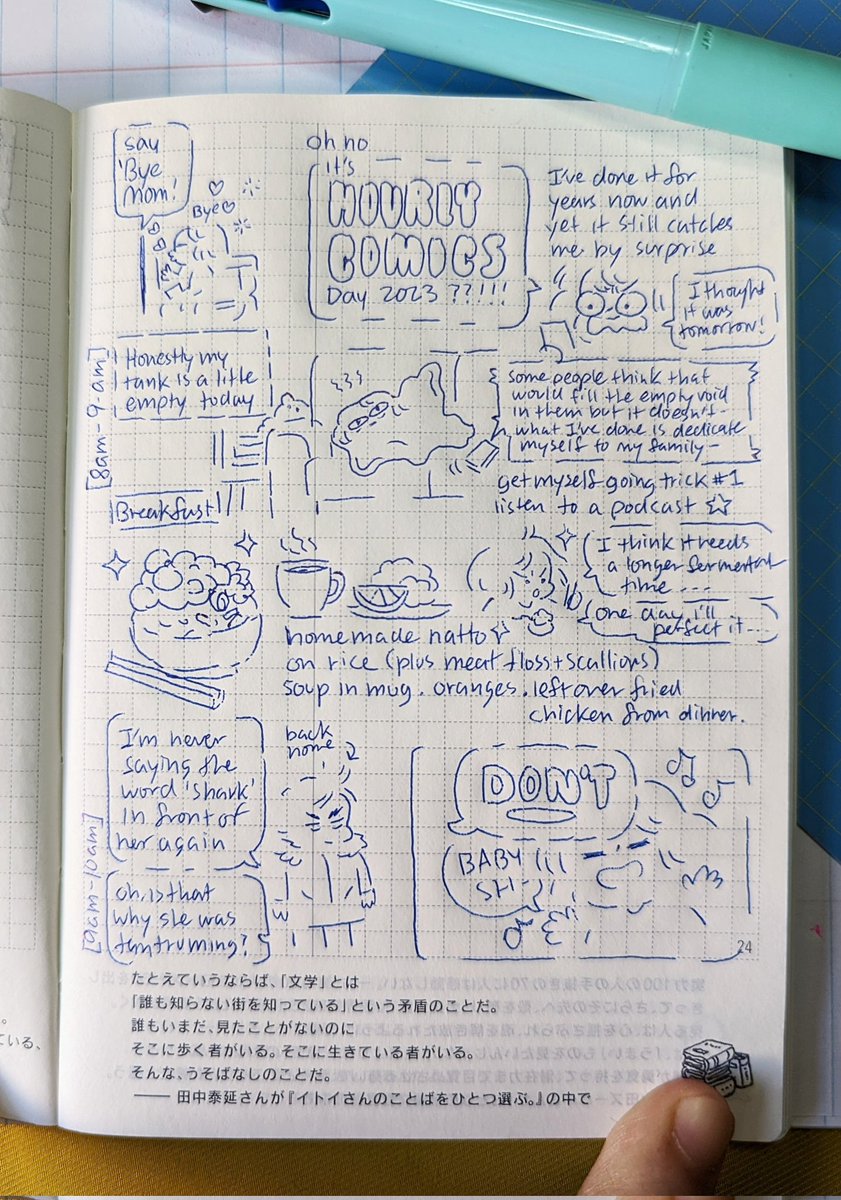 say
'Bye
Mom!'
Bye
oh no
it's
HOURLY
COMICS
Day 2023 ??!!!
I've done it for
years now and
yet it still catches
me by surprise
I thought
it was
tomorrow!
[8am-9am]
Honestly my
tank is a little
empty today
some people think that
would fill the empty void
in them but it doesn't-
what I've done is dedicate
myself to my family-
get myself going trick #1
listen to a podcast
Breakfast
I think it needs
a longer fermentation
time ...
one day i'll
perfect it...
homemade natto
on rice (plus meat floss + scallions)
soup in mug. oranges. leftover fried
chicken from dinner.
[9am-10am]
I'm never
saying the
word 'shark'
in front of
her again
back
home
oh, is that
why she was
tantruming?
DON'T
BABY
SH
24
たとえていうならば、「文学」とは
「誰も知らない街を知っている」という矛盾のことだ。
誰もいまだ、見たことがないのに
そこに歩く者がいる。そこに生きている者がいる。
そんな、うそばなしのことだ。
―― 田中泰延さんが『イトイさんのことばをひとつ選ぶ。』の中で
ている、
JAPA